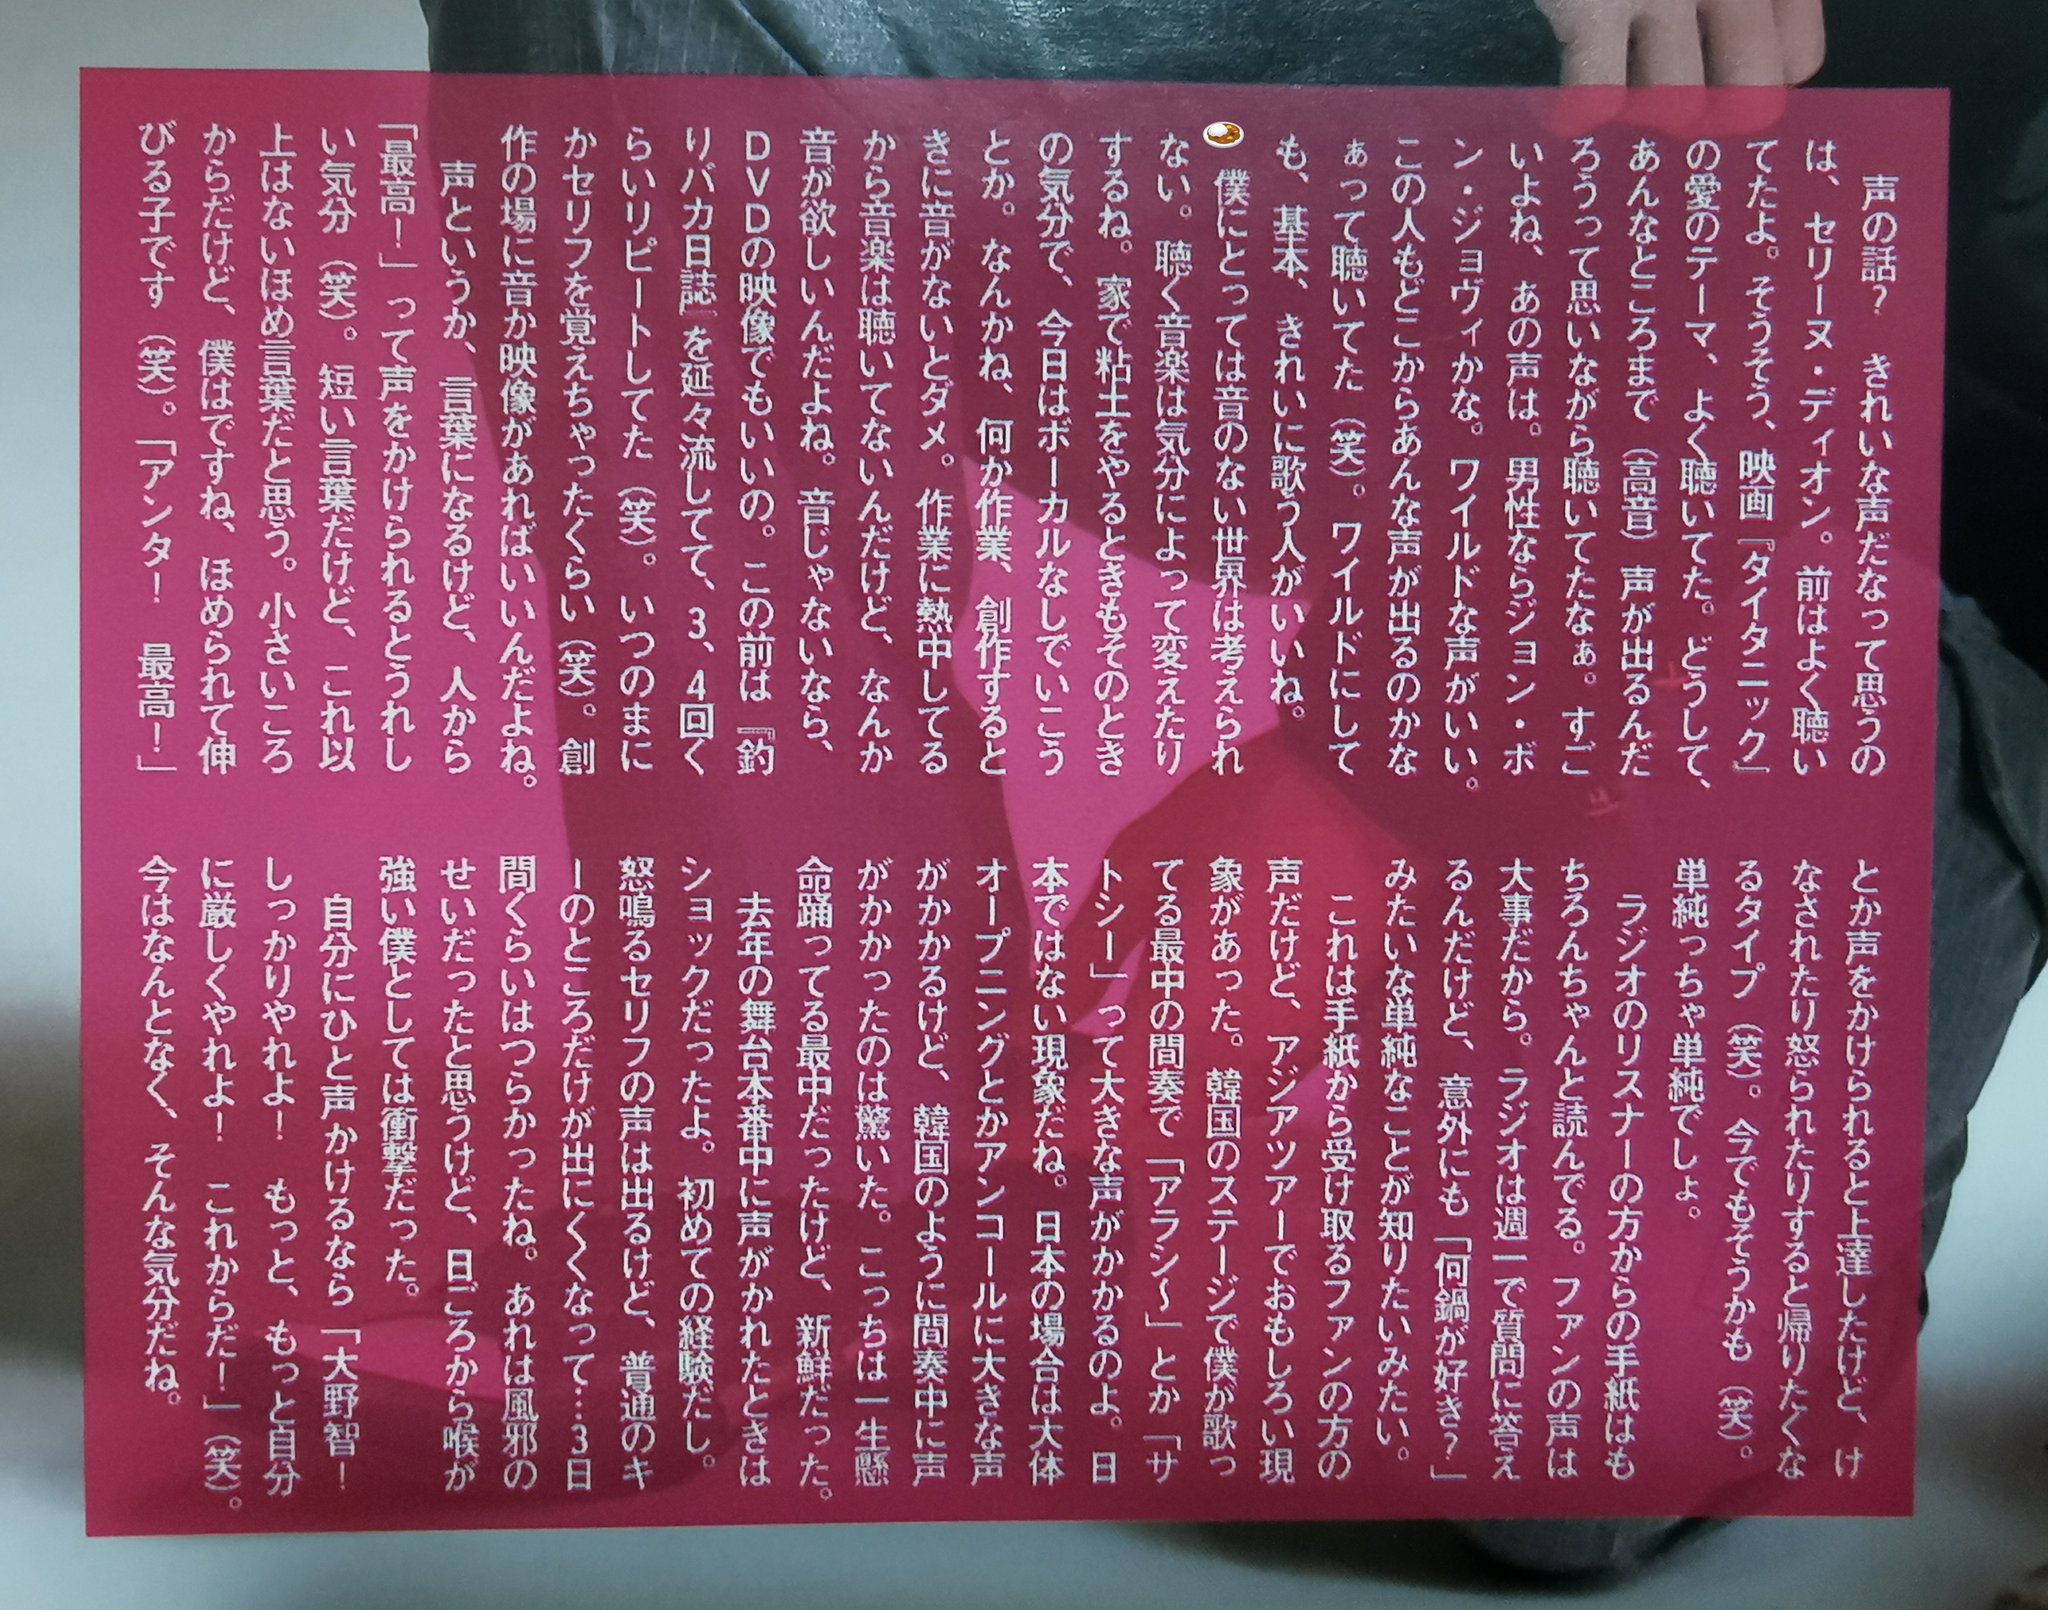 声の話？　きれいな声だなって思うの
は、セリーヌ・ディオン。前はよく聴い
てたよ。そうそう、映画『タイタニック』
の愛のテーマ、よく聴いてた。どうして、
あんなところまで（高音）声が出るんだ
ろうって思いながら聴いてたなぁ。すご
いよね、あの声は。男性ならジョン・ボ
ン・ジョヴィかな。ワイルドな声がいい。
この人もどこからあんな声が出るのかな
ぁって聴いてた（笑）。ワイルドにして
も、基本、きれいに歌う人がいいね。
僕にとっては音のない世界は考えられ
ない。聴く音楽は気分によって変えたり
するね。家で粘土をやるときもそのとき
の気分で、今日はボーカルなしでいこう
とか。なんかね、何か作業、創作すると
きに音がないとダメ。作業に熱中してる
から音楽は聴いてないんだけど、なんか
音が欲しいんだよね。音じゃないなら、
DVDの映像でもいいの。この前は『釣
りバカ日誌』を延々流してて、3、4回く
らいリピートしてた（笑）。いつのまに
かセリフを覚えちゃったくらい（笑）。創
作の場に音か映像があればいいんだよね。
声というか、言葉になるけど、人から
「最高！」って声をかけられるとうれし
い気分（笑）。短い言葉だけど、これ以
上はないほめ言葉だと思う。小さいころ
からだけど、僕はですね、ほめられて伸
びる子です（笑）。「アンタ！　最高！」
とか声をかけられると上達したけど、け
なされたり怒られたりすると帰りたくな
るタイプ（笑）。今でもそうかも（笑）。
単純っちゃ単純でしょ。
ラジオのリスナーの方からの手紙はも
ちろんちゃんと読んでる。ファンの声は
大事だから。ラジオは週一で質問に答え
るんだけど、意外にも「何鍋が好き？」
みたいな単純なことが知りたいみたい。
これは手紙から受け取るファンの方の
声だけど、アジアツアーでおもしろい現
象があった。韓国のステージで僕が歌っ
てる最中の間奏で「アラシ～」とか「サ
トシー」って大きな声がかかるのよ。日
本ではない現象だね。日本の場合は大体
オープニングとかアンコールに大きな声
がかかるけど、韓国のように間奏中に声
がかかったのは驚いた。こっちは一生懸
命踊ってる最中だったけど、新鮮だった。
去年の舞台本番中に声がかれたときは
ショックだったよ。初めての経験だし。
怒鳴るセリフの声は出るけど、普通のキ
ーのところだけが出にくくなって…3日
間くらいはつらかったね。あれは風邪の
せいだったと思うけど、日ごろから喉が
強い僕としては衝撃だった。
自分にひと声かけるなら「大野智！
しっかりやれよ！　もっと、もっと自分
に厳しくやれよ！　これからだ！」（笑）。
今はなんとなく、そんな気分だね。